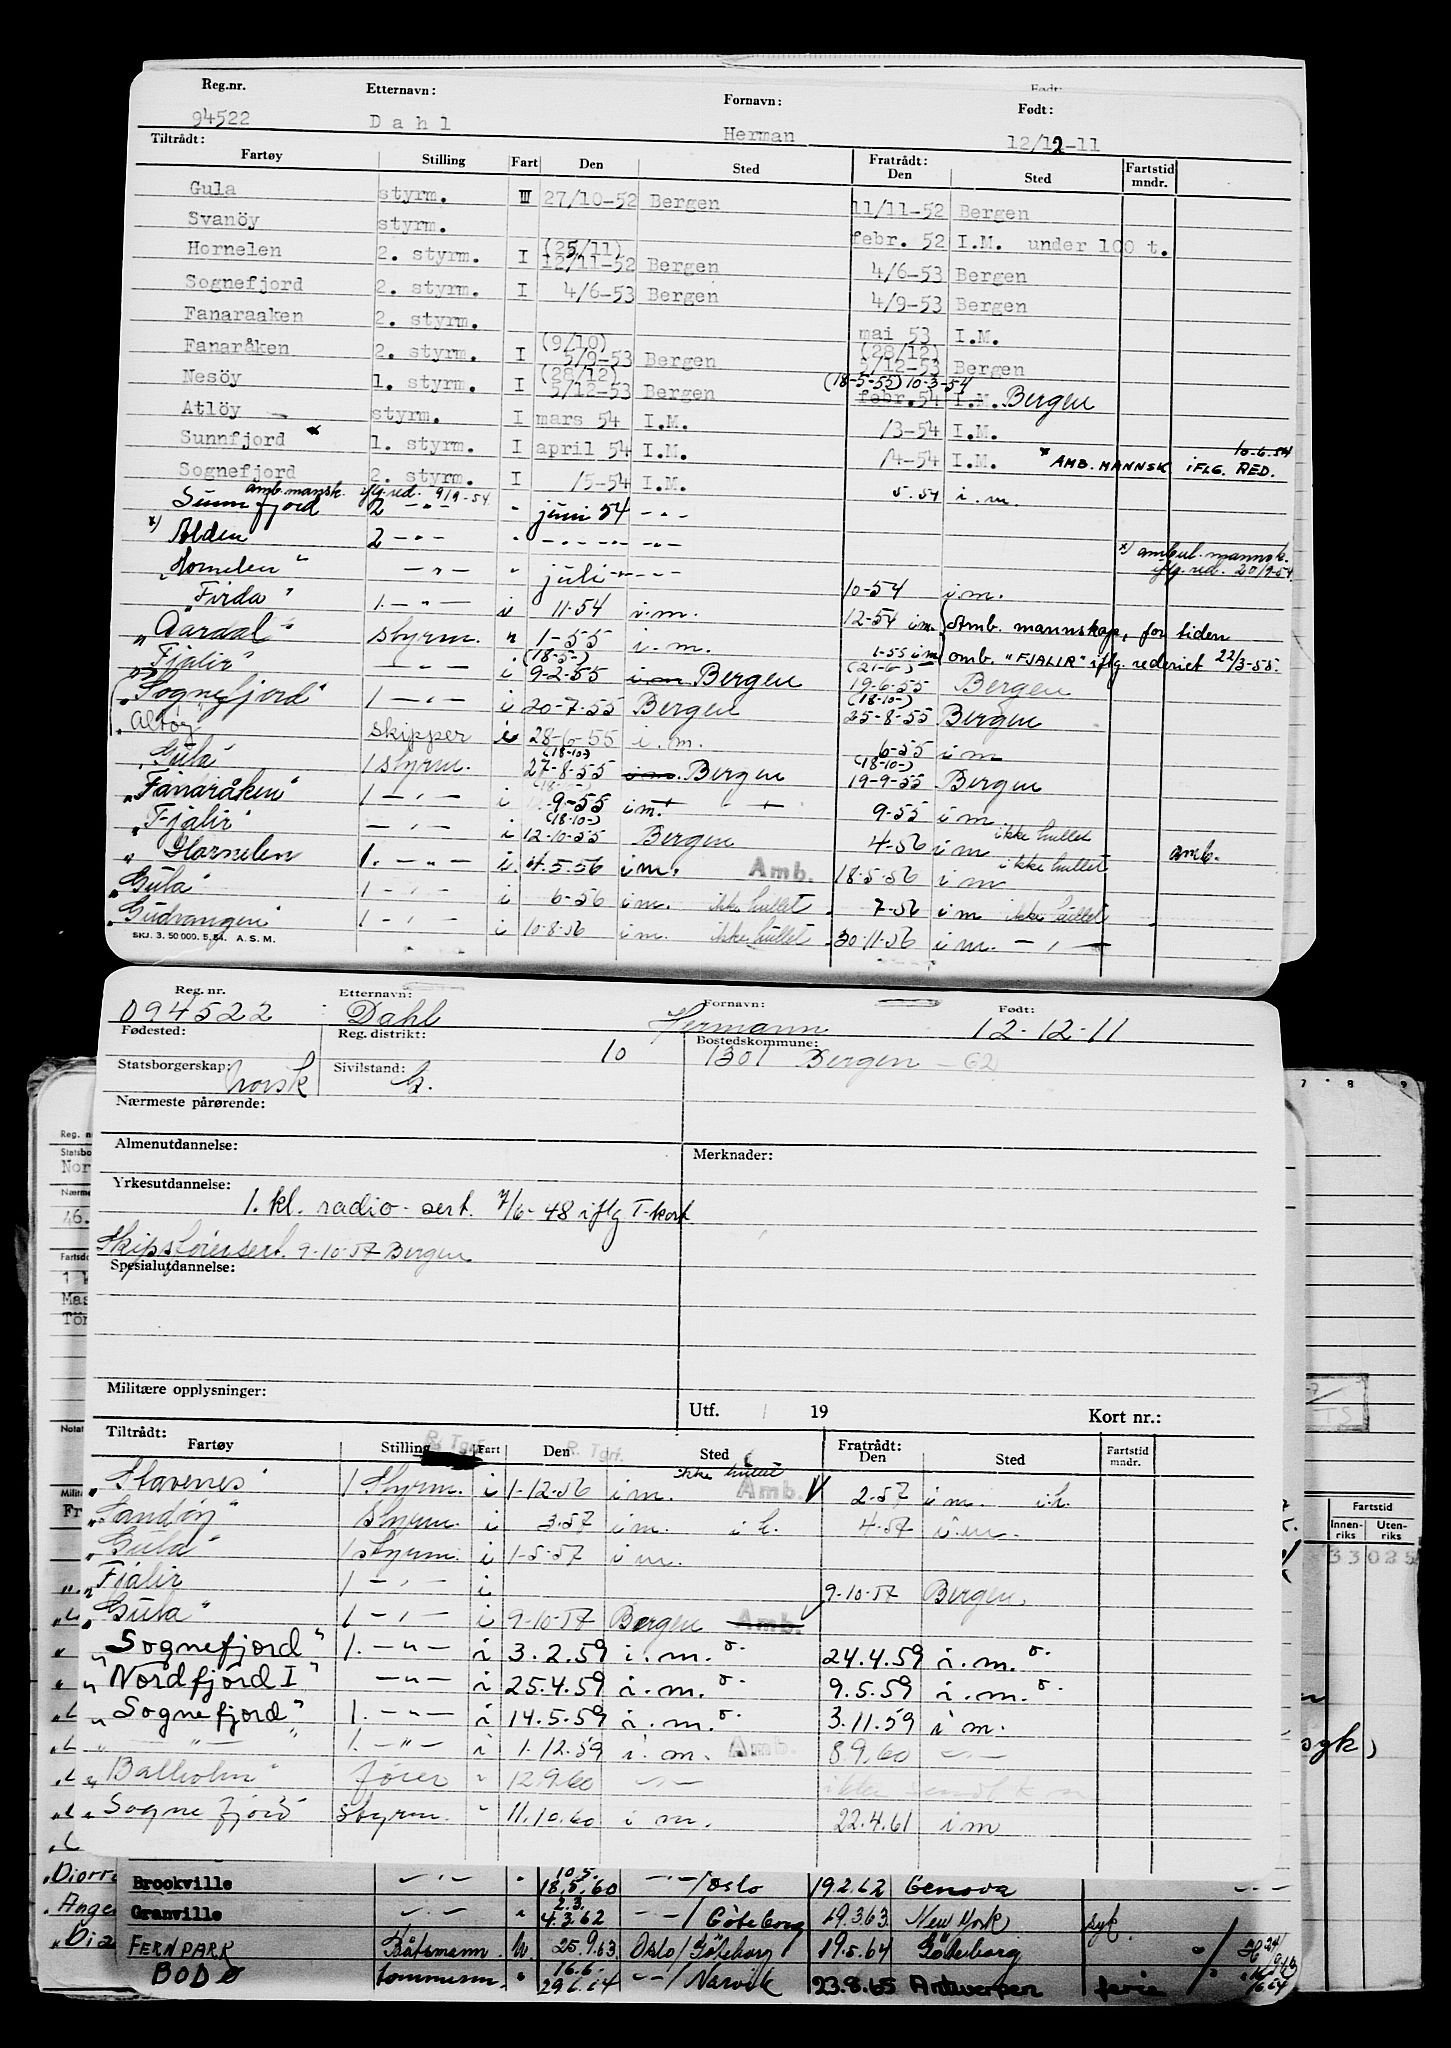 Reg.nr. Etternavn: Fornavn: Født:
94522 Dahl Herman 12/12-11
Tiltrådt: Fratrådt:
Fartøy Stilling Fart Den Sted Den Sted Fartstid mndr.
Gula styrm. III 27/10-52 Bergen 11/11-52 Bergen
Svanöy styrm. febr. 52 I.M. under 100 t.
Hornelen 2. styrm. I (25/11) 12/11-52 Bergen 4/6-53 Bergen
Sognefjord 2. styrm. I 4/6-53 Bergen 4/9-53 Bergen
Fanaraaken 2. styrm. mai 53 I.M.
Fanaråken 2. styrm. I (9/10) 5/9-53 Bergen (28/12) 5/12-53 Bergen
Nesöy 1. styrm. I (28/12) 5/12-53 Bergen (18-5-55) 10-3-54 febr. 54 I.M. Bergen
Atlöy styrm. I mars 54 I.M. /3-54 I.M.
Sunnfjord x 1. styrm. I april 54 I.M. /4-54 I.M. x AMB. MANNSK. IFLG. RED. 10-6-54
Sognefjord 2. styrm. I /5-54 I.M. 5.54 i.m.
amb. mansk. iflg. red. 9/9-54
Sunnfjord 2 -"- " juni 54 -"-
x) Alden 2 -"- " -"- -"- x) ambul. mannsk. iflg. red. 20/9-54
"Hornelen" -"- " juli -"- 10-54 i.m.
"Firda" 1. -"- i 11-54 i.m. 12-54 i.m. Amb. mannskap, for tiden
"Aardal" styrm. " 1-55 i.m. 1-55 i m omb. "FJALIR" iflg. rederiet 22/3-55.
"Fjalir" -"- i (18-5-) 9-2-55 i m Bergen (21-6-) 19-6-55 Bergen
"Sognefjord" 1 -"- i 20-7-55 Bergen (18-10-) 25-8-55 Bergen
"Atløy" skipper i 28-6-55 i.m. 6-55 i m
"Gula" 1 styrm. (18-10-) 27-8-55 i m. Bergen (18-10-) 19-9-55 Bergen
"Fanaråken" 1 -"- i 9-55 i m. 9-55 i m
"Fjalir" -"- i (18-10-) 12-10-55 Bergen 4-56 i m ikke hullet amb.
"Hornelen 1. -"- i. 4.5.56 i m. Amb. 18.5.56 i m ikke hullet
"Gula" 1 -"- i 6-56 i m. ikke hullet 7-56 i m ikke hullet
"Gudvangen" 1 -"- i 10-8-56 i m. ikke hullet 30-11-56 i m. -"-
SKJ. 3. 50 000. 5. 54. A.S.M.
Reg. nr. Etternavn: Fornavn: Født:
094522 Dahl Hermann 12-12-11
Fødested: Reg. distrikt: 10 Bostedskommune: 1301 Bergen - 62
Statsborgerskap: norsk Sivilstand: G.
Nærmeste pårørende:
Almenutdannelse: Merknader:
Yrkesutdannelse:
1. kl. radio-sert. 7/6-48 iflg T-kort
Skipsførersert. 9-10-57 Bergen
Spesialutdannelse:
Militære opplysninger:
Utf. 19 Kort nr.:
Tiltrådt: Fratrådt:
Fartøy Stilling Fart Den Sted Den Sted Fartstid mndr.
"Stavenes" 1 Styrm. i 1-12-56 i m. ikke hullet Amb. 2-57 i m. i.h.
"Sandøy" Styrm. i 3-57 i m. i h. 4-57 i m.
"Gula" 1 styrm. i 1-5-57 i m.
"Fjalir 1 -"- i 9-10-57 Bergen
"Gula" 1 -"- i 9-10-57 Bergen Amb.
"Sognefjord" 1. -"- i 3.2.59 i.m. 24.4.59 i.m.
"Nordfjord I" -"- i 25.4.59 i.m. 9.5.59 i.m.
"Sognefjord" 1. -"- i 14.5.59 i.m. 3.11.59 i m.
" -"- " 1. -"- i 1.12.59 i.m. Amb. 8.9.60 -"-
"Balholm" fører " 12.9.60 -"- ikke
"Sognefjord" styrm. " 11.10.60 i m. 22.4.61 i m
Brookville -"- " 10.5. 18.5.60 -"-/Oslo 19.2.62 Genova -"-
Granville -"- " 2.3. 4.3.62 -"-/Göteborg 19.3.63. New York syk.
FERNPARK Båtsmann. U. 25.9.63 Oslo/Göteborg 19.5.64 Göteborg
BODØ tømmerm. " 16.6. 29.6.64 -"-/Narvik 23.8.65 Antwerpen ferie
Fartstid
Innenriks Utenriks
syk)